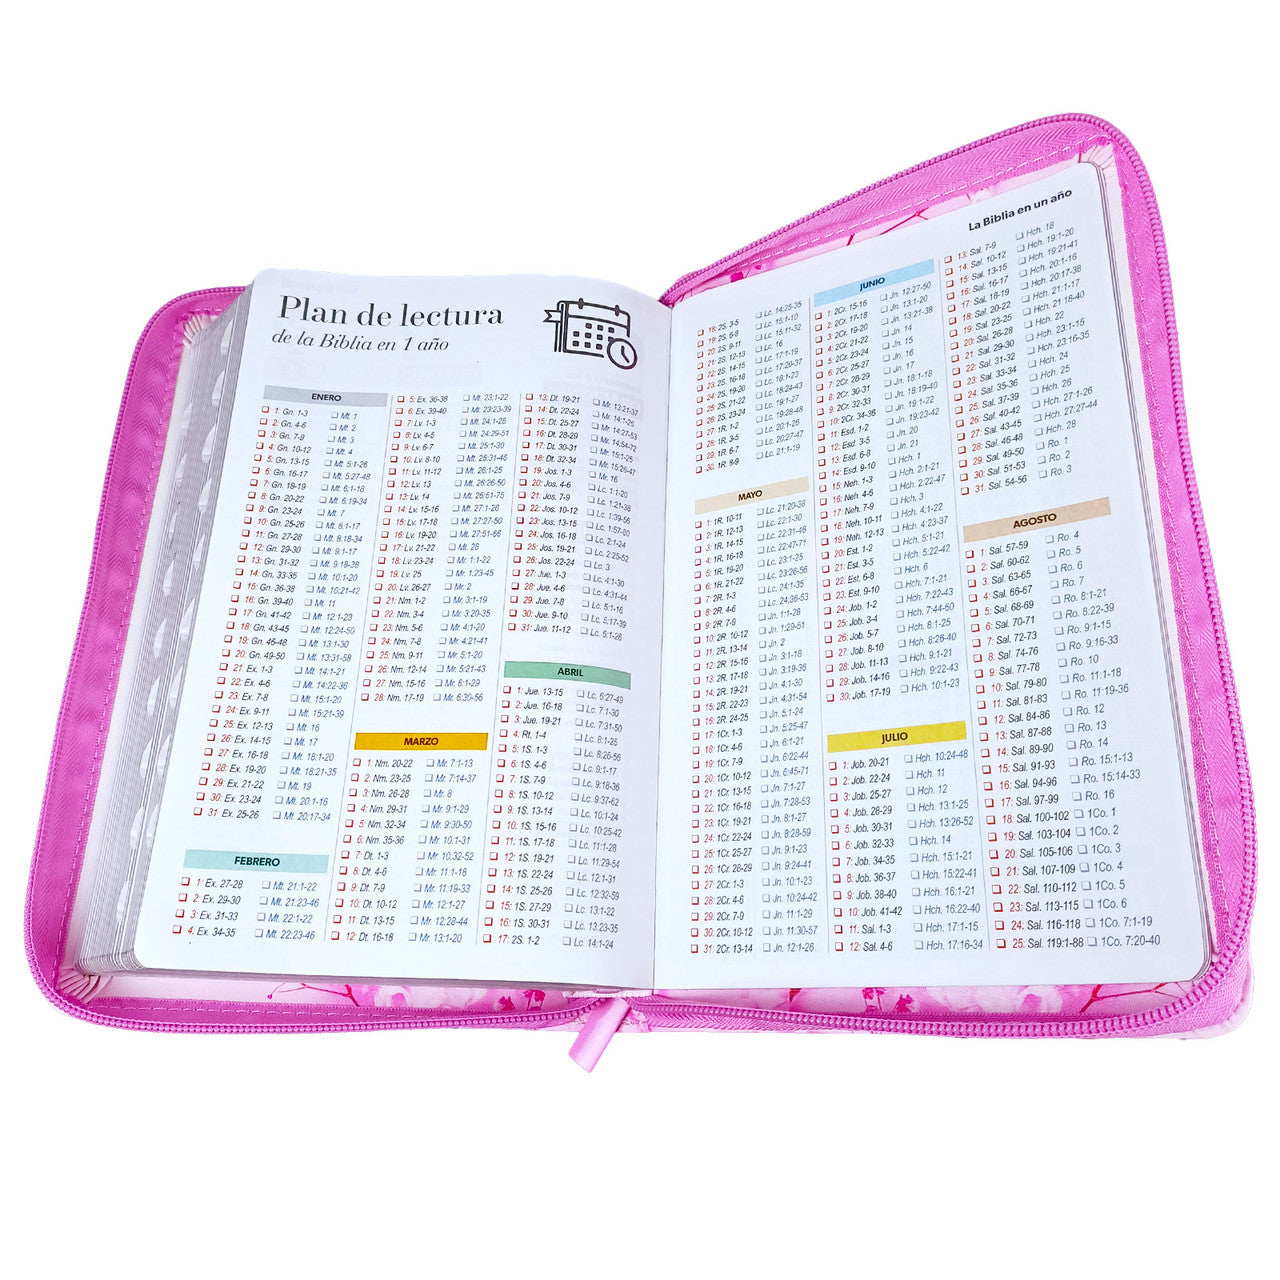 Plan de lectura
de la Biblia en 1 año
ENERO
1: Gn. 1-3 Mt. 1
2: Gn. 4-6 Mt. 2
3: Gn. 7-9 Mt. 3
4: Gn. 10-12 Mt. 4
5: Gn. 13-15 Mt. 5:1-26
6: Gn. 16-17 Mt. 5:27-48
7: Gn. 18-19 Mt. 6:1-18
8: Gn. 20-22 Mt. 6:19-34
9: Gn. 23-24 Mt. 7
10: Gn. 25-26 Mt. 8:1-17
11: Gn. 27-28 Mt. 8:18-34
12: Gn. 29-30 Mt. 9:1-17
13: Gn. 31-32 Mt. 9:18-38
14: Gn. 33-35 Mt. 10:1-20
15: Gn. 36-38 Mt. 10:21-42
16: Gn. 39-40 Mt. 11
17: Gn. 41-42 Mt. 12:1-23
18: Gn. 43-45 Mt. 12:24-50
19: Gn. 46-48 Mt. 13:1-30
20: Gn. 49-50 Mt. 13:31-58
21: Ex. 1-3 Mt. 14:1-21
22: Ex. 4-6 Mt. 14:22-36
23: Ex. 7-8 Mt. 15:1-20
24: Ex. 9-11 Mt. 15:21-39
25: Ex. 12-13 Mt. 16
26: Ex. 14-15 Mt. 17
27: Ex. 16-18 Mt. 18:1-20
28: Ex. 19-20 Mt. 18:21-35
29: Ex. 21-22 Mt. 19
30: Ex. 23-24 Mt. 20:1-16
31: Ex. 25-26 Mt. 20:17-34
FEBRERO
1: Ex. 27-28 Mt. 21:1-22
2: Ex. 29-30 Mt. 21:23-46
3: Ex. 31-33 Mt. 22:1-22
4: Ex. 34-35 Mt. 22:23-46
5: Ex. 36-38 Mt. 23:1-22
6: Ex. 39-40 Mt. 23:23-39
7: Lv. 1-3 Mt. 24:1-28
8: Lv. 4-5 Mt. 24:29-51
9: Lv. 6-7 Mt. 25:1-30
10: Lv. 8-10 Mt. 25:31-46
11: Lv. 11-12 Mt. 26:1-25
12: Lv. 13 Mt. 26:26-50
13: Lv. 14 Mt. 26:51-75
14: Lv. 15-16 Mt. 27:1-26
15: Lv. 17-18 Mt. 27:27-50
16: Lv. 19-20 Mt. 27:51-66
17: Lv. 21-22 Mt. 28
18: Lv. 23-24 Mr. 1:1-22
19: Lv. 25 Mr. 1:23-45
20: Lv. 26-27 Mr. 2
21: Nm. 1-2 Mr. 3:1-19
22: Nm. 3-4 Mr. 3:20-35
23: Nm. 5-6 Mr. 4:1-20
24: Nm. 7-8 Mr. 4:21-41
25: Nm. 9-11 Mr. 5:1-20
26: Nm. 12-14 Mr. 5:21-43
27: Nm. 15-16 Mr. 6:1-29
28: Nm. 17-19 Mr. 6:30-56
MARZO
1: Nm. 20-22 Mr. 7:1-13
2: Nm. 23-25 Mr. 7:14-37
3: Nm. 26-28 Mr. 8
4: Nm. 29-31 Mr. 9:1-29
5: Nm. 32-34 Mr. 9:30-50
6: Nm. 35-36 Mr. 10:1-31
7: Dt. 1-3 Mr. 10:32-52
8: Dt. 4-6 Mr. 11:1-18
9: Dt. 7-9 Mr. 11:19-33
10: Dt. 10-12 Mr. 12:1-27
11: Dt. 13-15 Mr. 12:28-44
12: Dt. 16-18 Mr. 13:1-20
13: Dt. 19-21 Mr. 13:21-37
14: Dt. 22-24 Mr. 14:1-26
15: Dt. 25-27 Mr. 14:27-53
16: Dt. 28-29 Mr. 14:54-72
17: Dt. 30-31 Mr. 15:1-25
18: Dt. 32-34 Mr. 15:26-47
19: Jos. 1-3 Mr. 16
20: Jos. 4-6 Lc. 1:1-20
21: Jos. 7-9 Lc. 1:21-38
22: Jos. 10-12 Lc. 1:39-56
23: Jos. 13-15 Lc. 1:57-80
24: Jos. 16-18 Lc. 2:1-24
25: Jos. 19-21 Lc. 2:25-52
26: Jos. 22-24 Lc. 3
27: Jue. 1-3 Lc. 4:1-30
28: Jue. 4-6 Lc. 4:31-44
29: Jue. 7-8 Lc. 5:1-16
30: Jue. 9-10 Lc. 5:17-39
31: Jue. 11-12 Lc. 6:1-26
ABRIL
1: Jue. 13-15 Lc. 6:27-49
2: Jue. 16-18 Lc. 7:1-30
3: Jue. 19-21 Lc. 7:31-50
4: Rt. 1-4 Lc. 8:1-25
5: 1S. 1-3 Lc. 8:26-56
6: 1S. 4-6 Lc. 9:1-17
7: 1S. 7-9 Lc. 9:18-36
8: 1S. 10-12 Lc. 9:37-62
9: 1S. 13-14 Lc. 10:1-24
10: 1S. 15-16 Lc. 10:25-42
11: 1S. 17-18 Lc. 11:1-28
12: 1S. 19-21 Lc. 11:29-54
13: 1S. 22-24 Lc. 12:1-31
14: 1S. 25-26 Lc. 12:32-59
15: 1S. 27-29 Lc. 13:1-22
16: 1S. 30-31 Lc. 13:23-35
17: 2S. 1-2 Lc. 14:1-24
La Biblia en un año
18: 2S. 3-5 Lc. 14:25-35
19: 2S. 6-8 Lc. 15:1-10
20: 2S. 9-11 Lc. 15:11-32
21: 2S. 12-13 Lc. 16
22: 2S. 14-15 Lc. 17:1-19
23: 2S. 16-18 Lc. 17:20-37
24: 2S. 19-20 Lc. 18:1-23
25: 2S. 21-22 Lc. 18:24-43
26: 2S. 23-24 Lc. 19:1-27
27: 1R. 1-2 Lc. 19:28-48
28: 1R. 3-5 Lc. 20:1-26
29: 1R. 6-7 Lc. 20:27-47
30: 1R. 8-9 Lc. 21:1-19
MAYO
1: 1R. 10-11 Lc. 21:20-38
2: 1R. 12-13 Lc. 22:1-30
3: 1R. 14-15 Lc. 22:31-46
4: 1R. 16-18 Lc. 22:47-71
5: 1R. 19-20 Lc. 23:1-25
6: 1R. 21-22 Lc. 23:26-56
7: 2R. 1-3 Lc. 24:1-35
8: 2R. 4-6 Lc. 24:35-53
9: 2R. 7-9 Jn. 1:1-28
10: 2R. 10-12 Jn. 1:29-51
11: 2R. 13-14 Jn. 2
12: 2R. 15-16 Jn. 3:1-18
13: 2R. 17-18 Jn. 3:19-36
14: 2R. 19-21 Jn. 4:1-30
15: 2R. 22-23 Jn. 4:31-54
16: 2R. 24-25 Jn. 5:1-24
17: 1Cr. 1-3 Jn. 5:25-47
18: 1Cr. 4-6 Jn. 6:1-21
19: 1Cr. 7-9 Jn. 6:22-44
20: 1Cr. 10-12 Jn. 6:45-71
21: 1Cr. 13-15 Jn. 7:1-27
22: 1Cr. 16-18 Jn. 7:28-53
23: 1Cr. 19-21 Jn. 8:1-27
24: 1Cr. 22-24 Jn. 8:28-59
25: 1Cr. 25-27 Jn. 9:1-23
26: 1Cr. 28-29 Jn. 9:24-41
27: 2Cr. 1-3 Jn. 10:1-23
28: 2Cr. 4-6 Jn. 10:24-42
29: 2Cr. 7-9 Jn. 11:1-29
30: 2Cr. 10-12 Jn. 11:30-57
31: 2Cr. 13-14 Jn. 12:1-26
JUNIO
1: 2Cr. 15-16 Jn. 12:27-50
2: 2Cr. 17-18 Jn. 13:1-20
3: 2Cr. 19-20 Jn. 13:21-38
4: 2Cr. 21-22 Jn. 14
5: 2Cr. 23-24 Jn. 15
6: 2Cr. 25-27 Jn. 16
7: 2Cr. 28-29 Jn. 17
8: 2Cr. 30-31 Jn. 18:1-18
9: 2Cr. 32-33 Jn. 18:19-40
10: 2Cr. 34-36 Jn. 19:1-22
11: Esd. 1-2 Jn. 19:23-42
12: Esd. 3-5 Jn. 20
13: Esd. 6-8 Jn. 21
14: Esd. 9-10 Hch. 1
15: Neh. 1-3 Hch. 2:1-21
16: Neh. 4-6 Hch. 2:22-47
17: Neh. 7-9 Hch. 3
18: Neh. 10-11 Hch. 4:1-22
19: Neh. 12-13 Hch. 4:23-37
20: Est. 1-2 Hch. 5:1-21
21: Est. 3-5 Hch. 5:22-42
22: Est. 6-8 Hch. 6
23: Est. 9-10 Hch. 7:1-21
24: Job. 1-2 Hch. 7:22-43
25: Job. 3-4 Hch. 7:44-60
26: Job. 5-7 Hch. 8:1-25
27: Job. 8-10 Hch. 8:26-40
28: Job. 11-13 Hch. 9:1-21
29: Job. 14-16 Hch. 9:22-43
30: Job. 17-19 Hch. 10:1-23
JULIO
1: Job. 20-21 Hch. 10:24-48
2: Job. 22-24 Hch. 11
3: Job. 25-27 Hch. 12
4: Job. 28-29 Hch. 13:1-25
5: Job. 30-31 Hch. 13:26-52
6: Job. 32-33 Hch. 14
7: Job. 34-35 Hch. 15:1-21
8: Job. 36-37 Hch. 15:22-41
9: Job. 38-40 Hch. 16:1-21
10: Job. 41-42 Hch. 16:22-40
11: Sal. 1-3 Hch. 17:1-15
12: Sal. 4-6 Hch. 17:16-34
13: Sal. 7-9 Hch. 18
14: Sal. 10-12 Hch. 19:1-20
15: Sal. 13-15 Hch. 19:21-41
16: Sal. 16-17 Hch. 20:1-16
17: Sal. 18-19 Hch. 20:17-38
18: Sal. 20-22 Hch. 21:1-17
19: Sal. 23-25 Hch. 21:18-40
20: Sal. 26-28 Hch. 22
21: Sal. 29-30 Hch. 23:1-15
22: Sal. 31-32 Hch. 23:16-35
23: Sal. 33-34 Hch. 24
24: Sal. 35-36 Hch. 25
25: Sal. 37-39 Hch. 26
26: Sal. 40-42 Hch. 27:1-26
27: Sal. 43-45 Hch. 27:27-44
28: Sal. 46-48 Hch. 28
29: Sal. 49-50 Ro. 1
30: Sal. 51-53 Ro. 2
31: Sal. 54-56 Ro. 3
AGOSTO
1: Sal. 57-59 Ro. 4
2: Sal. 60-62 Ro. 5
3: Sal. 63-65 Ro. 6
4: Sal. 66-67 Ro. 7
5: Sal. 68-69 Ro. 8:1-21
6: Sal. 70-71 Ro. 8:22-39
7: Sal. 72-73 Ro. 9:1-15
8: Sal. 74-76 Ro. 9:16-33
9: Sal. 77-78 Ro. 10
10: Sal. 79-80 Ro. 11:1-18
11: Sal. 81-83 Ro. 11:19-36
12: Sal. 84-86 Ro. 12
13: Sal. 87-88 Ro. 13
14: Sal. 89-90 Ro. 14
15: Sal. 91-93 Ro. 15:1-13
16: Sal. 94-96 Ro. 15:14-33
17: Sal. 97-99 Ro. 16
18: Sal. 100-102 1Co. 1
19: Sal. 103-104 1Co. 2
20: Sal. 105-106 1Co. 3
21: Sal. 107-109 1Co. 4
22: Sal. 110-112 1Co. 5
23: Sal. 113-115 1Co. 6
24: Sal. 116-118 1Co. 7:1-19
25: Sal. 119:1-88 1Co. 7:20-40